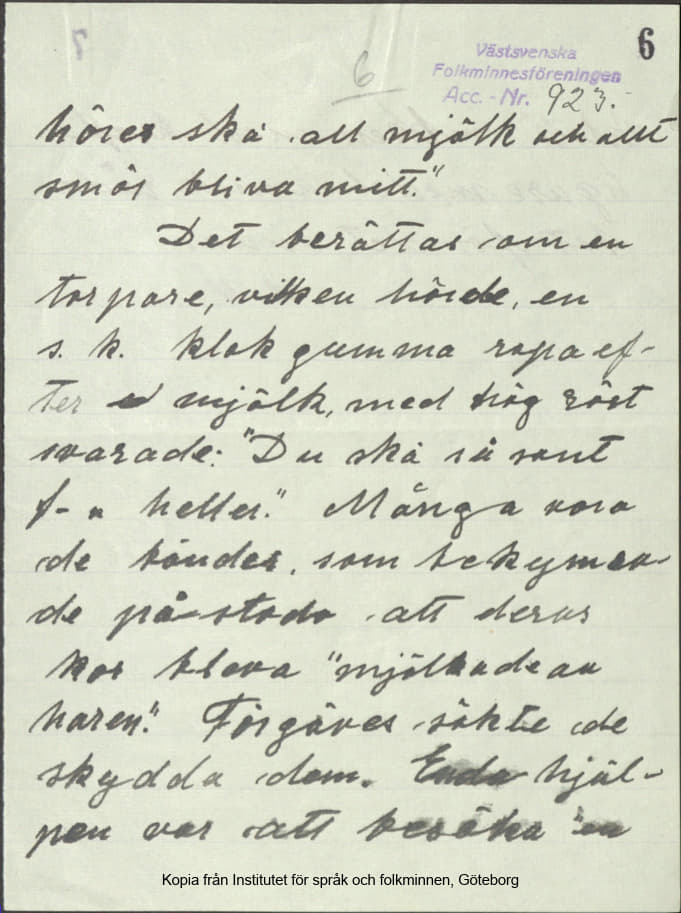 6
Västsvenska
Folkminnesföreningen
Acc. - Nr. 923.
6
höres ska all mjölk och allt
smör bliva mitt."
Det berättas om en
torpare, vilken hörde, en
s. k. klok gumma ropa ef-
ter mjölk, med hög röst
svarade: "Du ska så sant
f-n heller." Många voro
de bönder, som bekymra-
de påstodo att deras
kor bleva "mjölkade av
haren". Förgäves sökte de
skydda dem. Enda hjäl-
pen var att besöka "en
Kopia från Institutet för språk och folkminnen, Göteborg